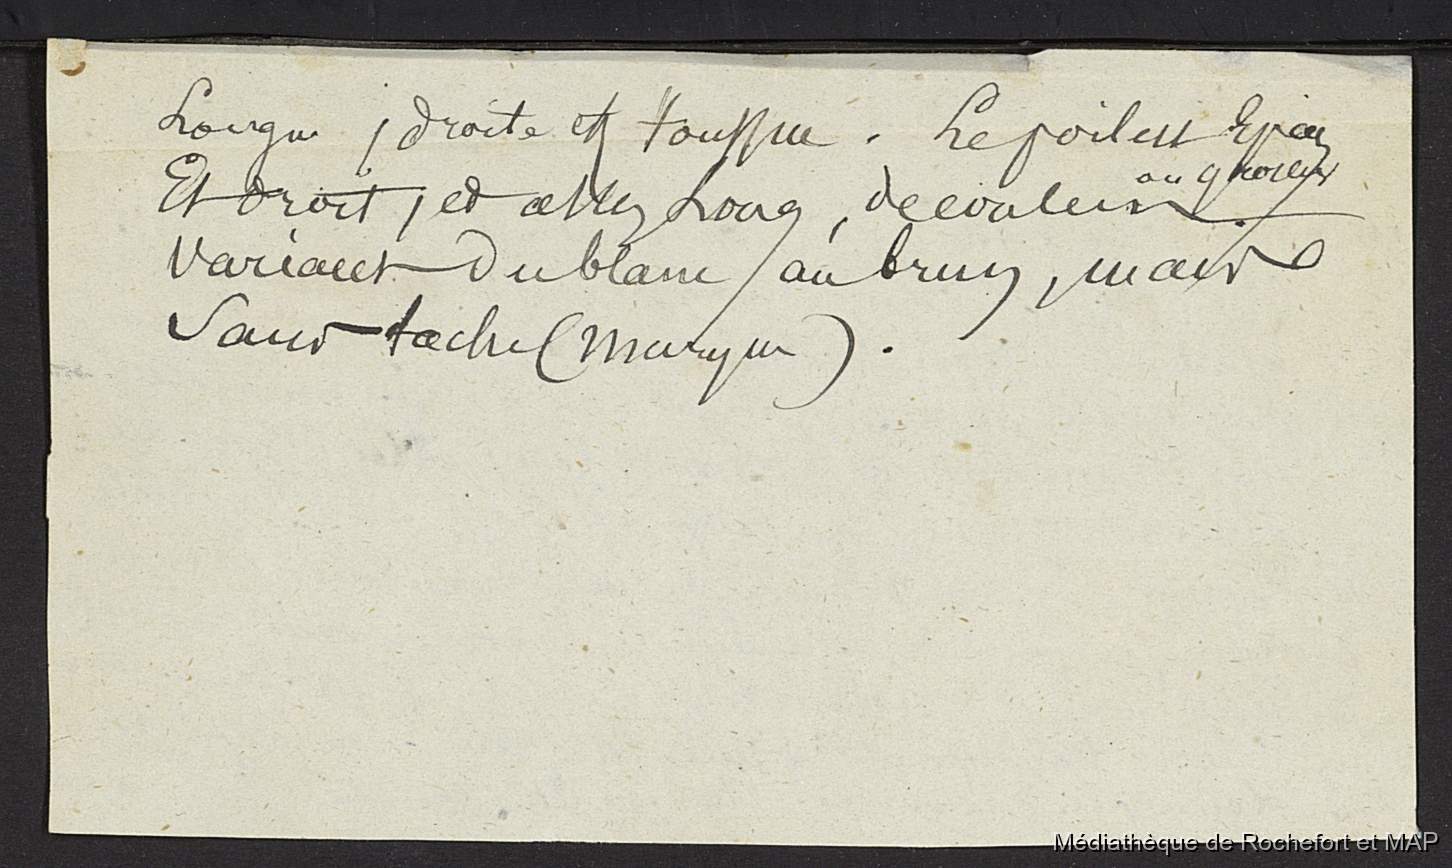 Longue, droite et touffue. Le poil est Epais
Et droit, et assez Long, de couleur
variant Du blanc au brun, mais
Sans tache (Marque).
Médiathèque de Rochefort et MAP